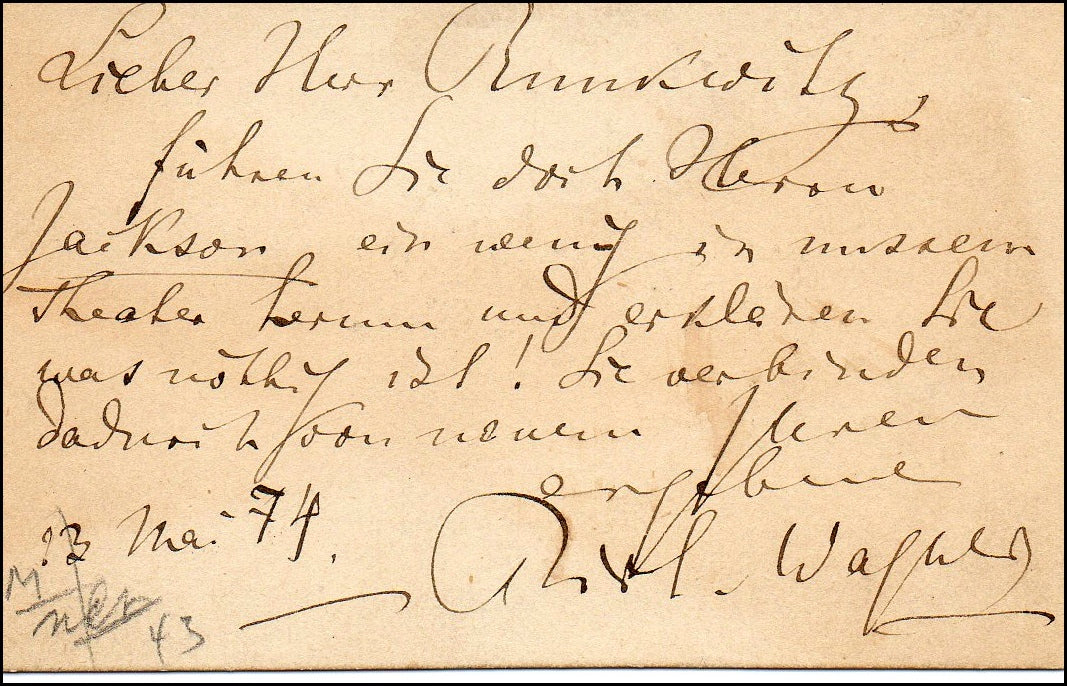 Lieber Herr Runkwitz,
führen Sie doch Herrn
Jackson ein wenig in unsrem
Theater herum und erklären Sie
was nöthig ist! Sie verbinden
dadurch von neuem Ihren
ergebnen
13 Mai 74.
Rich. Wagner
43